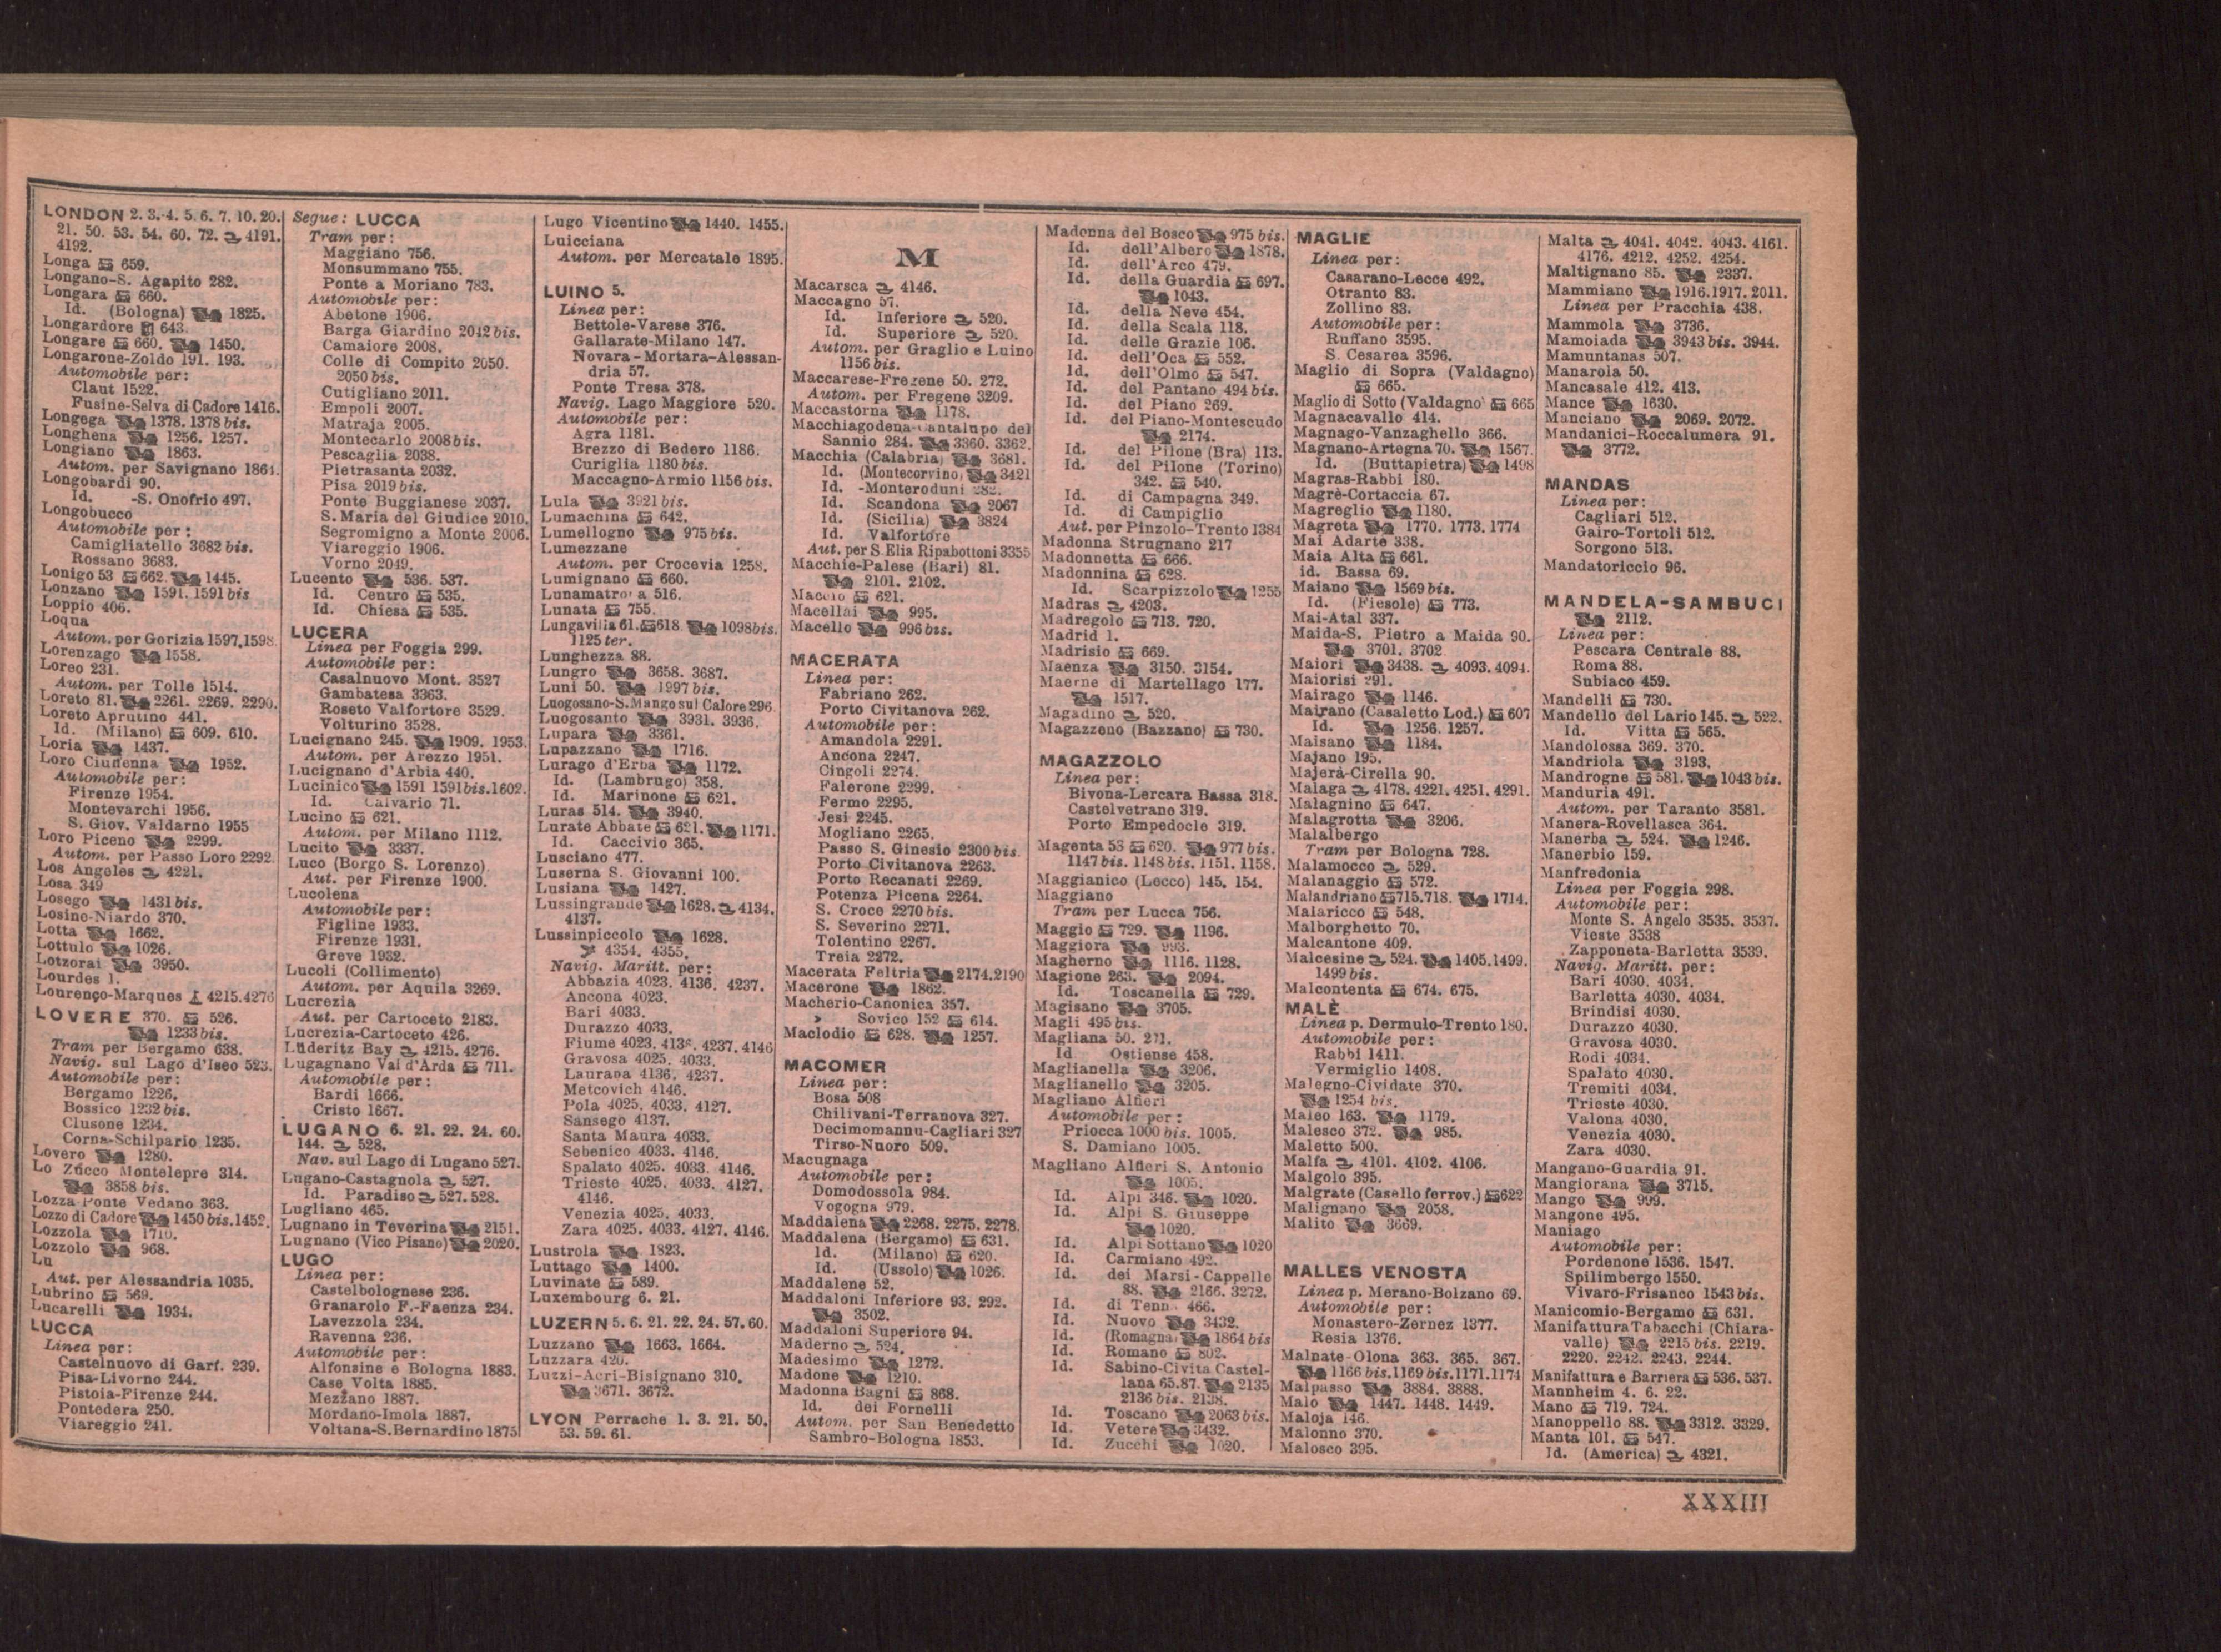 LONDON 2. 3. 4. 5. 6. 7. 10. 20.
21. 50. 53. 54. 60. 72. 4191.
4192.
Longa 659.
Longano-S. Agapito 282.
Longara 660.
Id. (Bologna) 1825.
Longardore 643.
Longare 660. 1450.
Longarone-Zoldo 191. 193.
Automobile per:
Claut 1522.
Fusine-Selva di Cadore 1416.
Longega 1378. 1378 bis.
Longhena 1256. 1257.
Longiano 1863.
Autom. per Savignano 1861.
Longobardi 90.
Id. -S. Onofrio 497.
Longobucco
Automobile per:
Camigliatello 3682 bis.
Rossano 3683.
Lonigo 53 662. 1445.
Lonzano 1591. 1591 bis
Loppio 406.
Loqua
Autom. per Gorizia 1597. 1598.
Lorenzago 1558.
Loreo 231.
Autom. per Tolle 1514.
Loreto 81. 2261. 2269. 2290.
Loreto Aprutino 441.
Id. (Milano) 609. 610.
Loria 1437.
Loro Ciuffenna 1952.
Automobile per:
Firenze 1954.
Montevarchi 1956.
S. Giov. Valdarno 1955
Loro Piceno 2299.
Autom. per Passo Loro 2292.
Los Angeles 4221.
Losa 349
Losego 1431 bis.
Losine-Niardo 370.
Lotta 1662.
Lottulo 1026.
Lotzorai 3950.
Lourdes 1.
Lourenço-Marques 4215. 4276
LOVERE 370. 526.
1233 bis.
Tram per Bergamo 638.
Navig. sul Lago d'Iseo 523.
Automobile per:
Bergamo 1226.
Bossico 1232 bis.
Clusone 1234.
Corna-Schilpario 1235.
Lovero 1280.
Lo Zucco Montelepre 314.
3858 bis.
Lozza Ponte Vedano 363.
Lozzo di Cadore 1450 bis. 1452.
Lozzola 1710.
Lozzolo 968.
Lu
Aut. per Alessandria 1035.
Lubrino 569.
Lucarelli 1934.
LUCCA
Linea per:
Castelnuovo di Garf. 239.
Pisa-Livorno 244.
Pistoia-Firenze 244.
Pontedera 250.
Viareggio 241.
Segue: LUCCA
Tram per:
Maggiano 756.
Monsummano 755.
Ponte a Moriano 783.
Automobile per:
Abetone 1906.
Barga Giardino 2042 bis.
Camaiore 2008.
Colle di Compito 2050.
2050 bis.
Cutigliano 2011.
Empoli 2007.
Matraja 2005.
Montecarlo 2008 bis.
Pescaglia 2038.
Pietrasanta 2032.
Pisa 2019 bis.
Ponte Buggianese 2037.
S. Maria del Giudice 2010.
Segromigno a Monte 2006.
Viareggio 1906.
Vorno 2049.
Lucento 536. 537.
Id. Centro 535.
Id. Chiesa 535.
LUCERA
Linea per Foggia 299.
Automobile per:
Casalnuovo Mont. 3527
Gambatesa 3363.
Roseto Valfortore 3529.
Volturino 3528.
Lucignano 245. 1909. 1953.
Autom. per Arezzo 1951.
Lucignano d'Arbia 440.
Lucinico 1591 1591 bis. 1602.
Id. Calvario 71.
Lucino 621.
Autom. per Milano 1112.
Lucito 3337.
Luco (Borgo S. Lorenzo)
Aut. per Firenze 1900.
Lucolena
Automobile per:
Figline 1933.
Firenze 1931.
Greve 1932.
Lucoli (Collimento)
Autom. per Aquila 3269.
Lucrezia
Aut. per Cartoceto 2183.
Lucrezia-Cartoceto 426.
Lüderitz Bay 4215. 4276.
Lugagnano Val d'Arda 711.
Automobile per:
Bardi 1666.
Cristo 1667.
LUGANO 6. 21. 22. 24. 60.
144. 528.
Nav. sul Lago di Lugano 527.
Lugano-Castagnola 527.
Id. Paradiso 527. 528.
Lugliano 465.
Lugnano in Teverina 2151.
Lugnano (Vico Pisano) 2020.
LUGO
Linea per:
Castelbolognese 236.
Granarolo F.-Faenza 234.
Lavezzola 234.
Ravenna 236.
Automobile per:
Alfonsine e Bologna 1883.
Case Volta 1885.
Mezzano 1887.
Mordano-Imola 1887.
Voltana-S. Bernardino 1875
Lugo Vicentino 1440. 1455.
Luicciana
Autom. per Mercatale 1895.
LUINO 5.
Linea per:
Bettole-Varese 376.
Gallarate-Milano 147.
Novara-Mortara-Alessan-
dria 57.
Ponte Tresa 378.
Navig. Lago Maggiore 520.
Automobile per:
Agra 1181.
Brezzo di Bedero 1186.
Curiglia 1180 bis.
Maccagno-Armio 1156 bis.
Lula 3921 bis.
Lumachina 642.
Lumellogno 975 bis.
Lumezzane
Autom. per Crocevia 1258.
Lumignano 660.
Lunamatrona 516.
Lunata 755.
Lungavilla 61. 618. 1098 bis.
1125 ter.
Lunghezza 88.
Lungro 3658. 3687.
Luni 50. 1997 bis.
Luogosano-S. Mango sul Calore 296
Luogosanto 3931. 3936.
Lupara 3361.
Lupazzano 1716.
Lurago d'Erba 1172.
Id. (Lambrugo) 358.
Id. Marinone 621.
Luras 514. 3940.
Lurate Abbate 621. 1171.
Id. Caccivio 365.
Lusciano 477.
Luserna S. Giovanni 100.
Lusiana 1427.
Lussingrande 1628. 4134.
4137.
Lussinpiccolo 1628.
4354. 4355.
Navig. Maritt. per:
Abbazia 4023. 4136. 4237.
Ancona 4023.
Bari 4033.
Durazzo 4033.
Fiume 4023. 4237. 4146
Gravosa 4025. 4033.
Laurana 4136. 4237.
Metcovich 4146.
Pola 4025. 4033. 4127.
Sansego 4137.
Santa Maura 4033.
Sebenico 4033. 4146.
Spalato 4025. 4033. 4146.
Trieste 4025. 4033. 4127.
4146.
Venezia 4025. 4033.
Zara 4025. 4033. 4127. 4146.
Lustrola 1823.
Luttago 1400.
Luvinate 589.
Luxembourg 6. 21.
LUZERN 5. 6. 21. 22. 24. 57. 60.
Luzzano 1663. 1664.
Luzzara 420.
Luzzi-Acri-Bisignano 310.
3671. 3672.
LYON Perrache 1. 3. 21. 50.
53. 59. 61.
M
Macarsca 4146.
Maccagno 57.
Id. Inferiore 520.
Id. Superiore 520.
Autom. per Graglio e Luino
1156 bis.
Maccarese-Fregene 50. 272.
Autom. per Fregene 3209.
Maccastorna 1178.
Macchiagodena-Cantalupo del
Sannio 284. 3360. 3362.
Macchia (Calabria) 3681.
Id. (Montecorvino) 3421
Id. -Monteroduni 282.
Id. Scandona 2067
Id. (Sicilia) 3824
Id. Valfortore
Aut. per S. Elia Ripabottoni 3355
Macchie-Palese (Bari) 81.
2101. 2102.
Maccio 621.
Macellai 995.
Macello 996 bis.
MACERATA
Linea per:
Fabriano 262.
Porto Civitanova 262.
Automobile per:
Amandola 2291.
Ancona 2247.
Cingoli 2274.
Falerone 2299.
Fermo 2295.
Jesi 2245.
Mogliano 2265.
Passo S. Ginesio 2300 bis.
Porto Civitanova 2263.
Porto Recanati 2269.
Potenza Picena 2264.
S. Croce 2270 bis.
S. Severino 2271.
Tolentino 2267.
Treia 2272.
Macerata Feltria 2174. 2190
Macerone 1862.
Macherio-Canonica 357.
» Sovico 152 614.
Maclodio 628. 1257.
MACOMER
Linea per:
Bosa 508
Chilivani-Terranova 327.
Decimomannu-Cagliari 327
Tirso-Nuoro 509.
Macugnaga
Automobile per:
Domodossola 984.
Vogogna 979.
Maddalena 2268. 2275. 2278.
Maddalena (Bergamo) 631.
Id. (Milano) 620.
Id. (Ussolo) 1026.
Maddalene 52.
Maddaloni Inferiore 93. 292.
3502.
Maddaloni Superiore 94.
Maderno 524.
Madesimo 1272.
Madone 1210.
Madonna Bagni 868.
Id. dei Fornelli
Autom. per San Benedetto
Sambro-Bologna 1853.
Madonna del Bosco 975 bis.
Id. dell'Albero 1878.
Id. dell'Arco 479.
Id. della Guardia 697.
1043.
Id. della Neve 454.
Id. della Scala 118.
Id. delle Grazie 106.
Id. dell'Oca 552.
Id. dell'Olmo 547.
Id. del Pantano 494 bis.
Id. del Piano 269.
Id. del Piano-Montescudo
2174.
Id. del Pilone (Bra) 113.
Id. del Pilone (Torino)
342. 540.
Id. di Campagna 349.
Id. di Campiglio
Aut. per Pinzolo-Trento 1384
Madonna Strugnano 217
Madonnetta 666.
Madonnina 628.
Id. Scarpizzolo 1255
Madras 4203.
Madregolo 713. 720.
Madrid 1.
Madrisio 669.
Maenza 3150. 3154.
Maerne di Martellago 177.
1517.
Magadino 520.
Magazzeno (Bazzano) 730.
MAGAZZOLO
Linea per:
Bivona-Lercara Bassa 318.
Castelvetrano 319.
Porto Empedocle 319.
Magenta 53 620. 977 bis.
1147 bis. 1148 bis. 1151. 1158.
Maggianico (Lecco) 145. 154.
Maggiano
Tram per Lucca 756.
Maggio 729. 1196.
Maggiora 993.
Magherno 1116. 1128.
Magione 263. 2094.
Id. Toscanella 729.
Magisano 3705.
Magli 495 bis.
Magliana 50. 271.
Id Ostiense 458.
Maglianella 3206.
Maglianello 3205.
Magliano Alfieri
Automobile per:
Priocca 1000 bis. 1005.
S. Damiano 1005.
Magliano Alfieri S. Antonio
1005.
Id. Alpi 346. 1020.
Id. Alpi S. Giuseppe
1020.
Id. Alpi Sottano 1020
Id. Carmiano 492.
Id. dei Marsi-Cappelle
88. 2166. 3272.
Id. di Tenna 466.
Id. Nuovo 3432.
Id. (Romagna) 1864 bis
Id. Romano 802.
Id. Sabino-Civita Castel-
lana 65. 87. 2135
2136 bis. 2138.
Id. Toscano 2063 bis.
Id. Vetere 3432.
Id. Zucchi 1020.
MAGLIE
Linea per:
Casarano-Lecce 492.
Otranto 83.
Zollino 83.
Automobile per:
Ruffano 3595.
S. Cesarea 3596.
Maglio di Sopra (Valdagno)
665.
Maglio di Sotto (Valdagno) 665
Magnacavallo 414.
Magnago-Vanzaghello 366.
Magnano-Artegna 70. 1567.
Id. (Buttapietra) 1498
Magras-Rabbi 180.
Magrè-Cortaccia 67.
Magreglio 1180.
Magreta 1770. 1773. 1774
Mai Adarte 338.
Maia Alta 661.
id. Bassa 69.
Maiano 1569 bis.
Id. (Fiesole) 773.
Mai-Atal 337.
Maida-S. Pietro a Maida 90.
3701. 3702
Maiori 3438. 4093. 4094.
Maiorisi 291.
Mairago 1146.
Mairano (Casaletto Lod.) 607
Id. 1256. 1257.
Maisano 1184.
Majano 195.
Majerà-Cirella 90.
Malaga 4178. 4221. 4251. 4291.
Malagnino 647.
Malagrotta 3206.
Malalbergo
Tram per Bologna 728.
Malamocco 529.
Malanaggio 572.
Malandriano 715. 718. 1714.
Malaricco 548.
Malborghetto 70.
Malcantone 409.
Malcesine 524. 1405. 1499.
1499 bis.
Malcontenta 674. 675.
MALÈ
Linea p. Dermulo-Trento 180.
Automobile per:
Rabbi 1411.
Vermiglio 1408.
Malegno-Cividate 370.
1254 bis.
Maleo 163. 1179.
Malesco 372. 985.
Maletto 500.
Malfa 4101. 4102. 4106.
Malgolo 395.
Malgrate (Casello ferrov.) 622
Malignano 2058.
Malito 3669.
MALLES VENOSTA
Linea p. Merano-Bolzano 69.
Automobile per:
Monastero-Zernez 1377.
Resia 1376.
Malnate-Olona 363. 365. 367.
1166 bis. 1169 bis. 1171. 1174
Malpasso 3884. 3888.
Malo 1447. 1448. 1449.
Maloja 146.
Malonno 370.
Malosco 395.
Malta 4041. 4042. 4043. 4161.
4176. 4212. 4252. 4254.
Maltignano 85. 2337.
Mammiano 1916. 1917. 2011.
Linea per Pracchia 438.
Mammola 3736.
Mamoiada 3943 bis. 3944.
Mamuntanas 507.
Manarola 50.
Mancasale 412. 413.
Mance 1630.
Manciano 2069. 2072.
Mandanici-Roccalumera 91.
3772.
MANDAS
Linea per:
Cagliari 512.
Gairo-Tortoli 512.
Sorgono 513.
Mandatoriccio 96.
MANDELA-SAMBUCI
2112.
Linea per:
Pescara Centrale 88.
Roma 88.
Subiaco 459.
Mandelli 730.
Mandello del Lario 145. 522.
Id. Vitta 565.
Mandolossa 369. 370.
Mandriola 3193.
Mandrogne 581. 1043 bis.
Manduria 491.
Autom. per Taranto 3581.
Manera-Rovellasca 364.
Manerba 524. 1246.
Manerbio 159.
Manfredonia
Linea per Foggia 298.
Automobile per:
Monte S. Angelo 3535. 3537.
Vieste 3538
Zapponeta-Barletta 3539.
Navig. Maritt. per:
Bari 4030. 4034.
Barletta 4030. 4034.
Brindisi 4030.
Durazzo 4030.
Gravosa 4030.
Rodi 4034.
Spalato 4030.
Tremiti 4034.
Trieste 4030.
Valona 4030.
Venezia 4030.
Zara 4030.
Mangano-Guardia 91.
Mangiorana 3715.
Mango 999.
Mangone 495.
Maniago
Automobile per:
Pordenone 1536. 1547.
Spilimbergo 1550.
Vivaro-Frisanco 1543 bis.
Manicomio-Bergamo 631.
Manifattura Tabacchi (Chiara-
valle) 2215 bis. 2219.
2220. 2242. 2243. 2244.
Manifattura e Barriera 536. 537.
Mannheim 4. 6. 22.
Mano 719. 724.
Manoppello 88. 3312. 3329.
Manta 101. 547.
Id. (America) 4321.
XXXIII